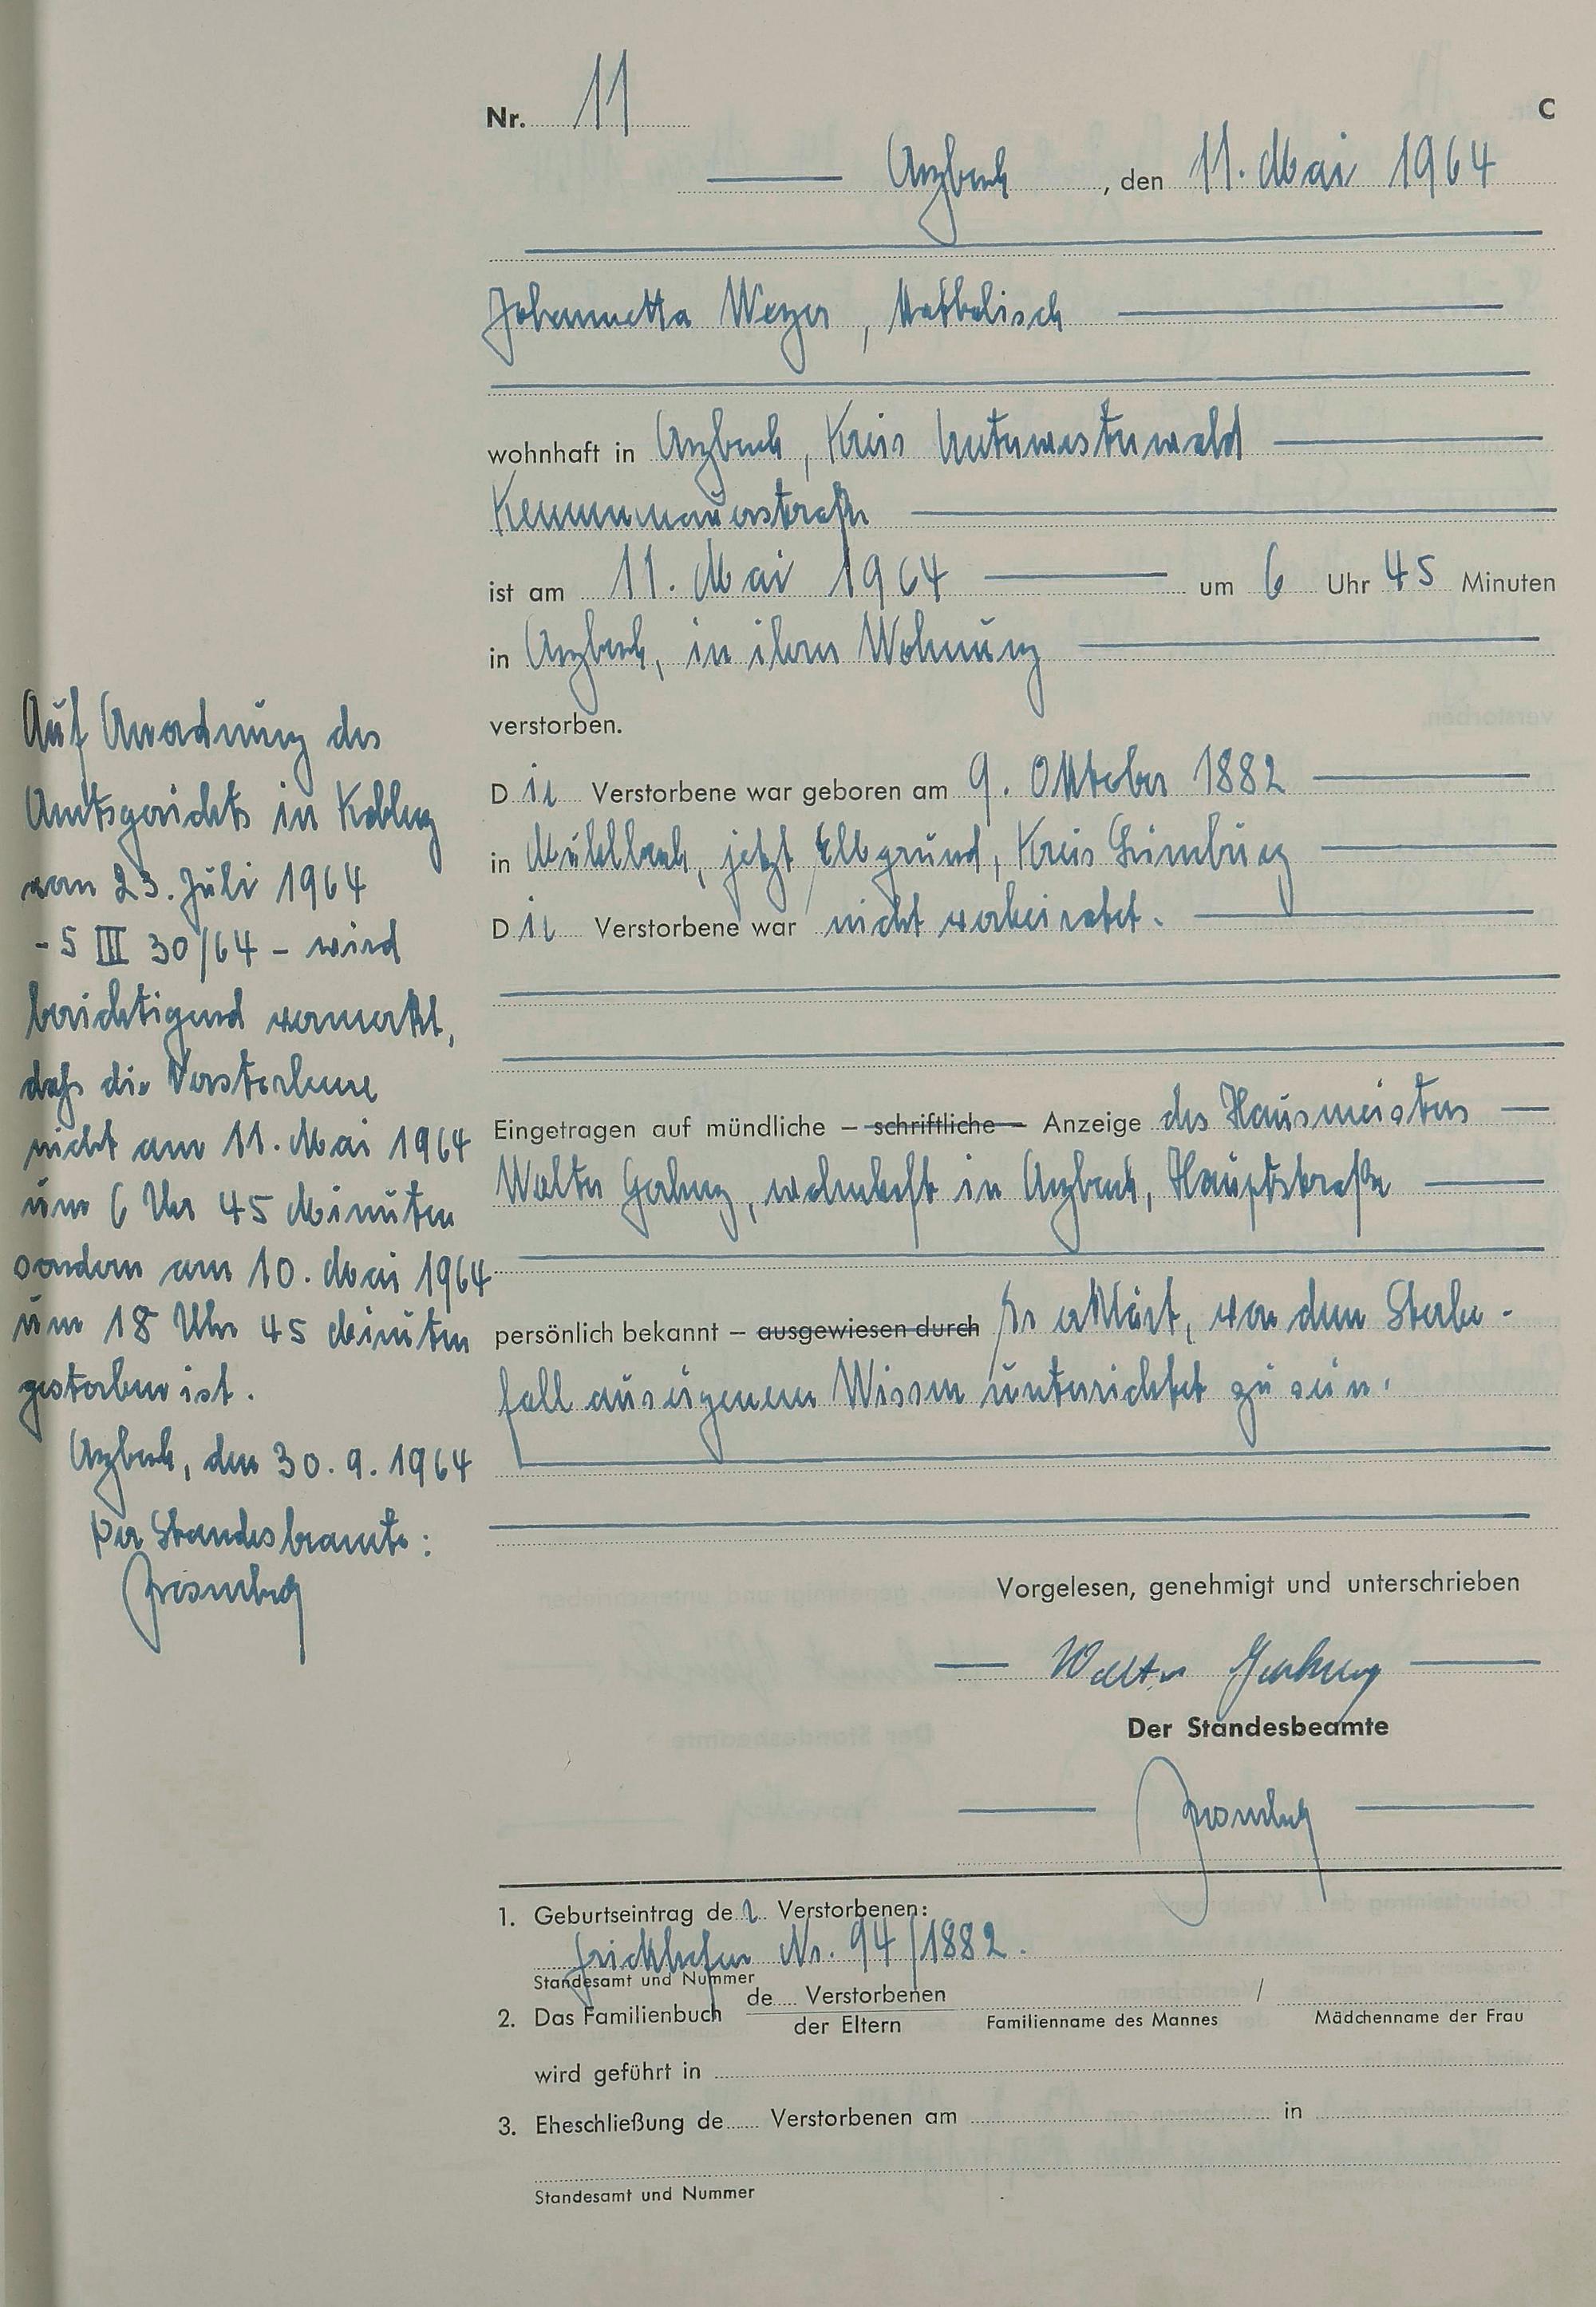 Nr. 11
C
Arzbach, den 11. Mai 1964
Johannetta Weyer, katholisch
wohnhaft in Arzbach, Kreis Unterwesterwald
Kemmenauerstraße
ist am 11. Mai 1964 um 6 Uhr 45 Minuten
in Arzbach, in ihrer Wohnung
verstorben.
Die Verstorbene war geboren am 9. Oktober 1882
in Mühlbach, jetzt Elbgrund, Kreis Limburg
Die Verstorbene war nicht verheiratet.
Eingetragen auf mündliche – schriftliche – Anzeige des Hausmeisters
Walter, wohnhaft in Arzbach, Hauptstraße
persönlich bekannt – ausgewiesen durch Er erklärt, von dem Sterbe-
fall aus eigenem Wissen unterrichtet zu sein.
Vorgelesen, genehmigt und unterschrieben
Walter
Der Standesbeamte
Auf Anordnung des
Amtsgerichts in Koblenz
vom 23. Juli 1964
- 5 III 30/64 - wird
berichtigend vermerkt,
daß die Verstorbene
nicht am 11. Mai 1964
um 6 Uhr 45 Minuten
sondern am 10. Mai 1964
um 18 Uhr 45 Minuten
gestorben ist.
Arzbach, den 30.9.1964
Der Standesbeamte:
1. Geburtseintrag der Verstorbenen:
Frickhofen Nr. 94/1882.
Standesamt und Nummer
2. Das Familienbuch de Verstorbenen /
der Eltern Familienname des Mannes Mädchenname der Frau
wird geführt in
3. Eheschließung de Verstorbenen am in
Standesamt und Nummer